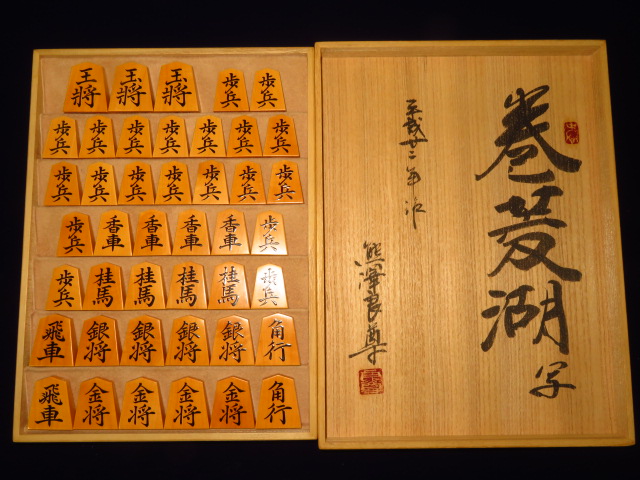 王将 玉将 玉将 歩兵 歩兵
歩兵 歩兵 歩兵 歩兵 歩兵 歩兵 歩兵
歩兵 歩兵 歩兵 歩兵 歩兵 歩兵 歩兵
歩兵 香車 香車 香車 香車 歩兵
歩兵 桂馬 桂馬 桂馬 桂馬 歩兵
飛車 銀将 銀将 銀将 銀将 角行
飛車 金将 金将 金将 金将 角行
巻菱湖写
平成廿二年作
熊澤良尊